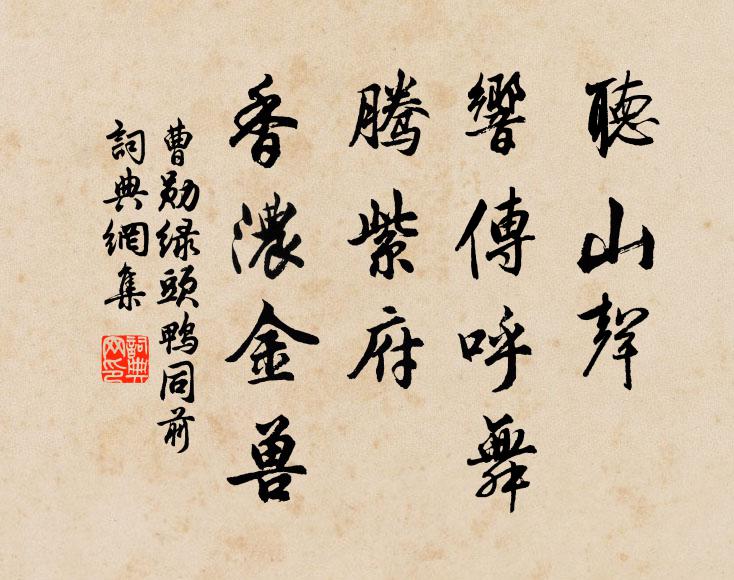 聽山聲
響傳呼舞
騰紫府
香濃金兽
曹勛緑頭鴨同前
詞典網集
詞典网印